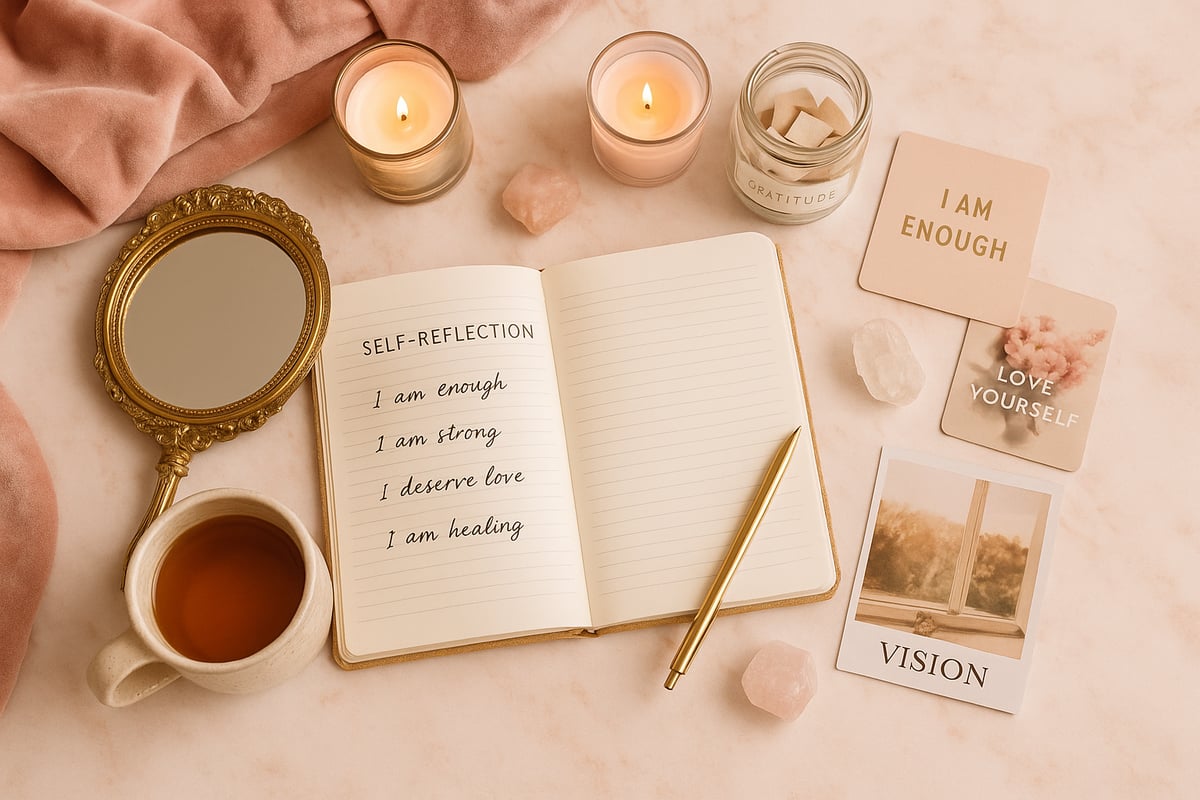 GRATITUDE
I AM
ENOUGH
SELF-REFLECTION
I am enough
I am strong
I deserve love
I am healing
LOVE
YOURSELF
VISION